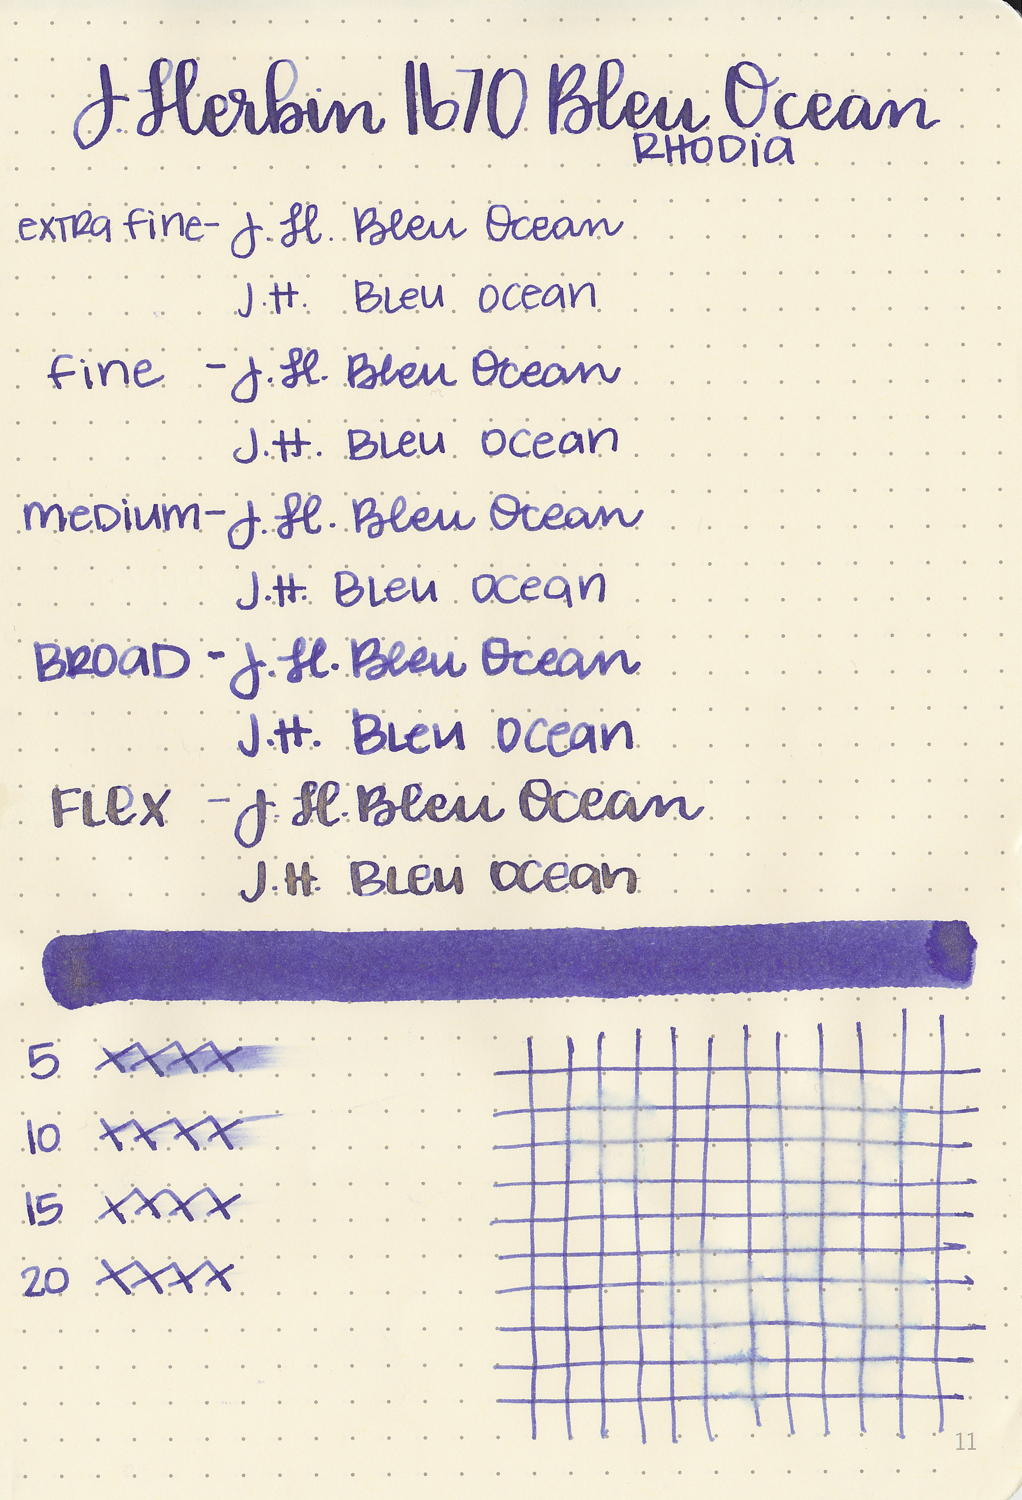 J Herbin 1670 Bleu Ocean
RHODIA
extra fine- J. H. Bleu Ocean
J.H. Bleu ocean
fine - J. H. Bleu Ocean
J.H. Bleu ocean
medium- J. H. Bleu Ocean
J.H. Bleu ocean
BROAD - J. H. Bleu Ocean
J.H. Bleu ocean
FLEX - J. H. Bleu Ocean
J.H. Bleu ocean
5 XXXX
10 XXXX
15 XXXX
20 XXXX
11